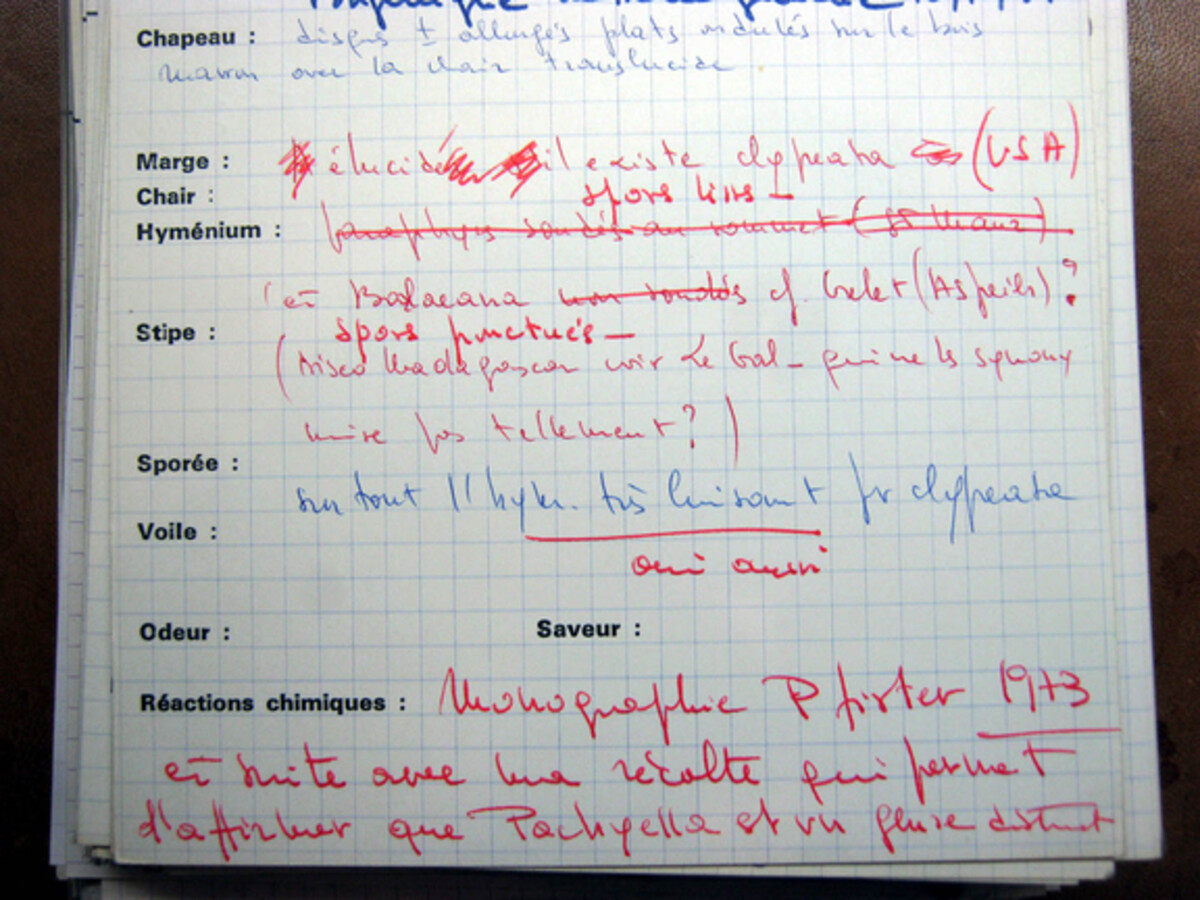 Chapeau : disques ± allongés plats ondulés sur le bois
marron avec la chair translucide
Marge : élucidé il existe clypeata (USA)
Chair : spores lisses —
Hyménium : paraphyses au sommet
et Babaeana cf. Grelet (Aspeils) ?
Stipe : spores ponctuées —
( Madagascar voir Le Gal — qui ne les synony
mise pas tellement ? )
Sporée :
surtout l'hym. très luisant pr clypeata
Voile :
oui aussi
Odeur : Saveur :
Réactions chimiques : Monographie Pfister 1973
et suite avec ma récolte qui permet
d'affirmer que Pachyella est un genre distinct